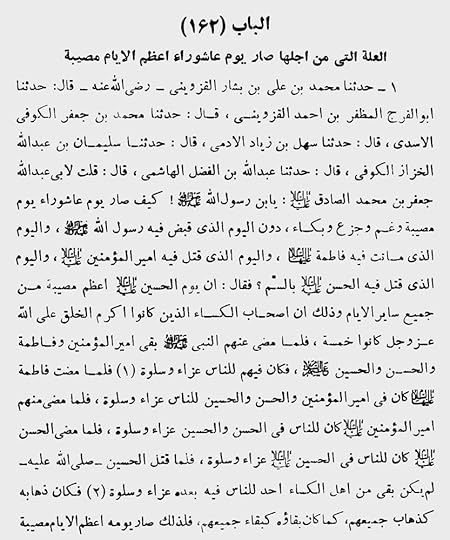 الباب (۱۶۲)
العلة التى من اجلها صار يوم عاشوراء اعظم الايام مصيبة
۱ ـ حدثنا محمد بن على بن بشار القزوينى ـ رضى الله عنه ـ قال: حدثنا
ابوالفرج المظفر بن احمد القزوينى ، قال : حدثنا محمد بن جعفر الكوفى
الاسدى ، قال : حدثنا سهل بن زياد الادمى ، قال : حدثنا سليمان بن عبدالله
الخزاز الكوفى ، قال : حدثنا عبدالله بن الفضل الهاشمى ، قال : قلت لابى عبدالله
جعفر بن محمد الصادق عليه السلام : يابن رسول الله ﷺ ! كيف صار يوم عاشوراء يوم
مصيبة وغم وجزع وبكاء ، دون اليوم الذى قبض فيه رسول الله ﷺ ، واليوم
الذى ماتت فيه فاطمة عليها السلام ، واليوم الذى قتل فيه امير المؤمنين عليه السلام ، واليوم
الذى قتل فيه الحسن عليه السلام بالسّم ؟ فقال : ان يوم الحسين عليه السلام اعظم مصيبة من
جميع ساير الايام وذلك ان اصحاب الكساء الذين كانوا اكرم الخلق على الله
عزوجل كانوا خمسة ، فلما مضى عنهم النبى ﷺ بقى امير المؤمنين وفاطمة
والحسن والحسين عليهم السلام ، فكان فيهم للناس عزاء وسلوة (۱) فلما مضت فاطمة
عليها السلام كان فى امير المؤمنين والحسن والحسين للناس عزاء وسلوة ، فلما مضى منهم
امير المؤمنين عليه السلام كان للناس فى الحسن والحسين عزاء وسلوة ، فلما مضى الحسن
عليه السلام كان للناس فى الحسين عليه السلام عزاء وسلوة ، فلما قتل الحسين ـ صلى الله عليه ـ
لم يكن بقى من اهل الكساء احد للناس فيه بعده عزاء وسلوة (۲) فكان ذهابه
كذهاب جميعهم، كما كان بقاؤه كبقاء جميعهم، فلذلك صار يومه اعظم الايام مصيبة